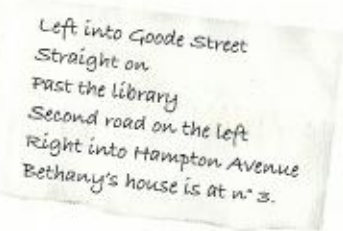 Left into Goode Street
Straight on
Past the library
Second road on the left
Right into Hampton Avenue
Bethany's house is at n.° 3.